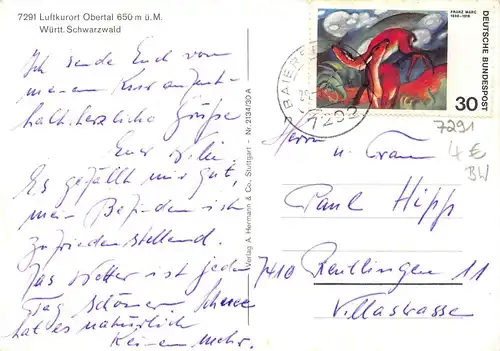 7291 Luftkurort Obertal 650 m ü. M.
Württ. Schwarzwald
Ich sende Euch von
meinem Kuraufent-
halt herzliche Grüße
Euer Willi.
Es gefällt mir gut,
mein Befinden ist
zufriedenstellend.
Das Wetter ist jeden
Tag schöner. Schnee
hat es natürlich
keinen mehr.
Verlag A. Hermann & Co., Stuttgart - Nr. 2134/30 A
FRANZ MARC
1880-1916
DEUTSCHE BUNDESPOST
30
BAIERS
7292
7291
4 €
BW
Herrn
u. Frau
Paul Hipp
7410 Reutlingen 11
Villastrasse